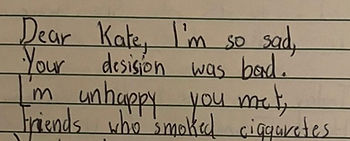 Dear Kate, I'm so sad,
Your desision was bad.
I'm unhappy you met,
Friends who smoked ciggaretes